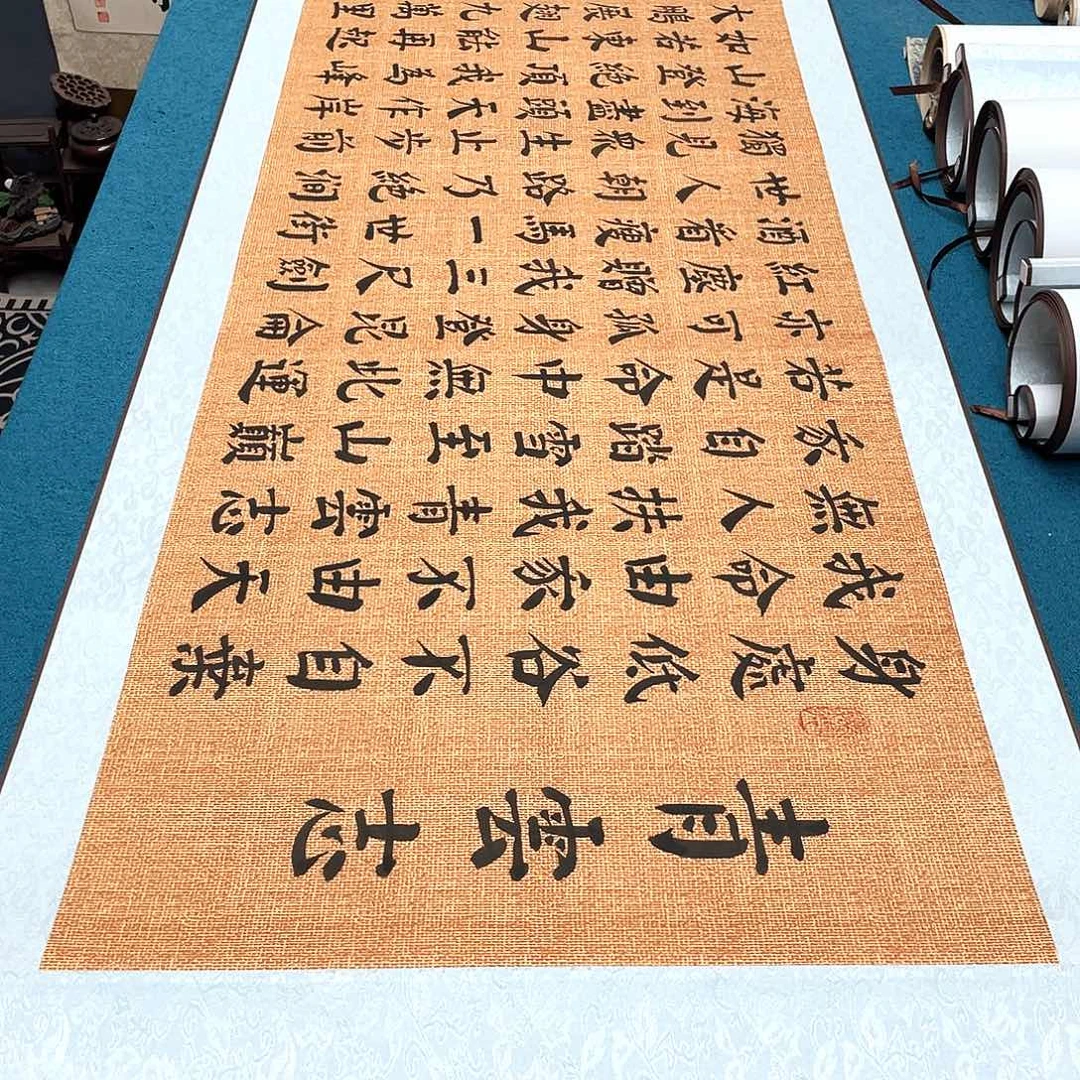 青雲志
身處低谷不自棄
我命由家不由天
無人扶我青雲志
家自踏雪至山巔
若是命中無此運
亦可孤身登昆侖
紅塵贈我三尺劍
酒着瘦馬一世街
世人朝路乃絕澗
獨見衆生止步前
海到盡頭天作岸
山登絕頂我爲峰
如若東山能再起
大鵬展翅九萬里